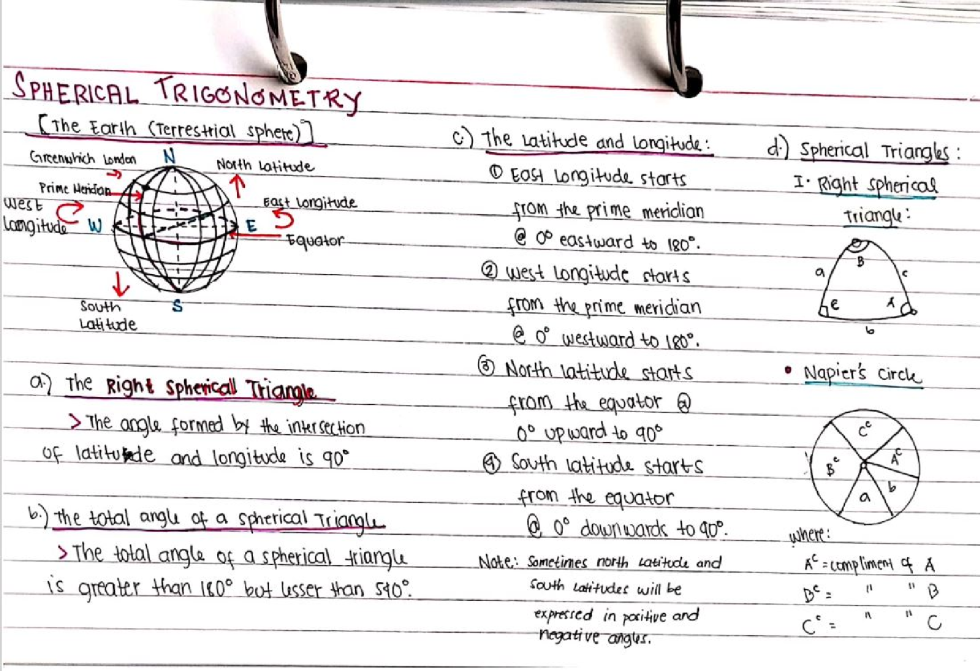 SPHERICAL TRIGONOMETRY
[The Earth (Terrestrial sphere)]
Greenwhich London
N
North Latitude
Prime Meridian
West
Longitude
W
East Longitude
E
Equator
South
Latitude
S
a.) The Right Spherical Triangle
> The angle formed by the intersection
of latitude and longitude is 90°
b.) The total angle of a spherical Triangle
> The total angle of a spherical triangle
is greater than 180° but lesser than 540°.
c.) The Latitude and Longitude:
① East Longitude starts
from the prime meridian
@ 0° eastward to 180°.
② West Longitude starts
from the prime meridian
@ 0° westward to 180°.
③ North latitude starts
from the equator @
0° upward to 90°
④ South latitude starts
from the equator
@ 0° downwards to 90°.
Note: Sometimes north latitude and
south latitudes will be
expressed in positive and
negative angles.
d.) Spherical Triangles:
I. Right spherical
Triangle:
B
a
c
A
b
• Napier's Circle
Cᶜ
Bᶜ
Aᶜ
a
b
where:
Aᶜ = compliment of A
Bᶜ = " " B
Cᶜ = " " C